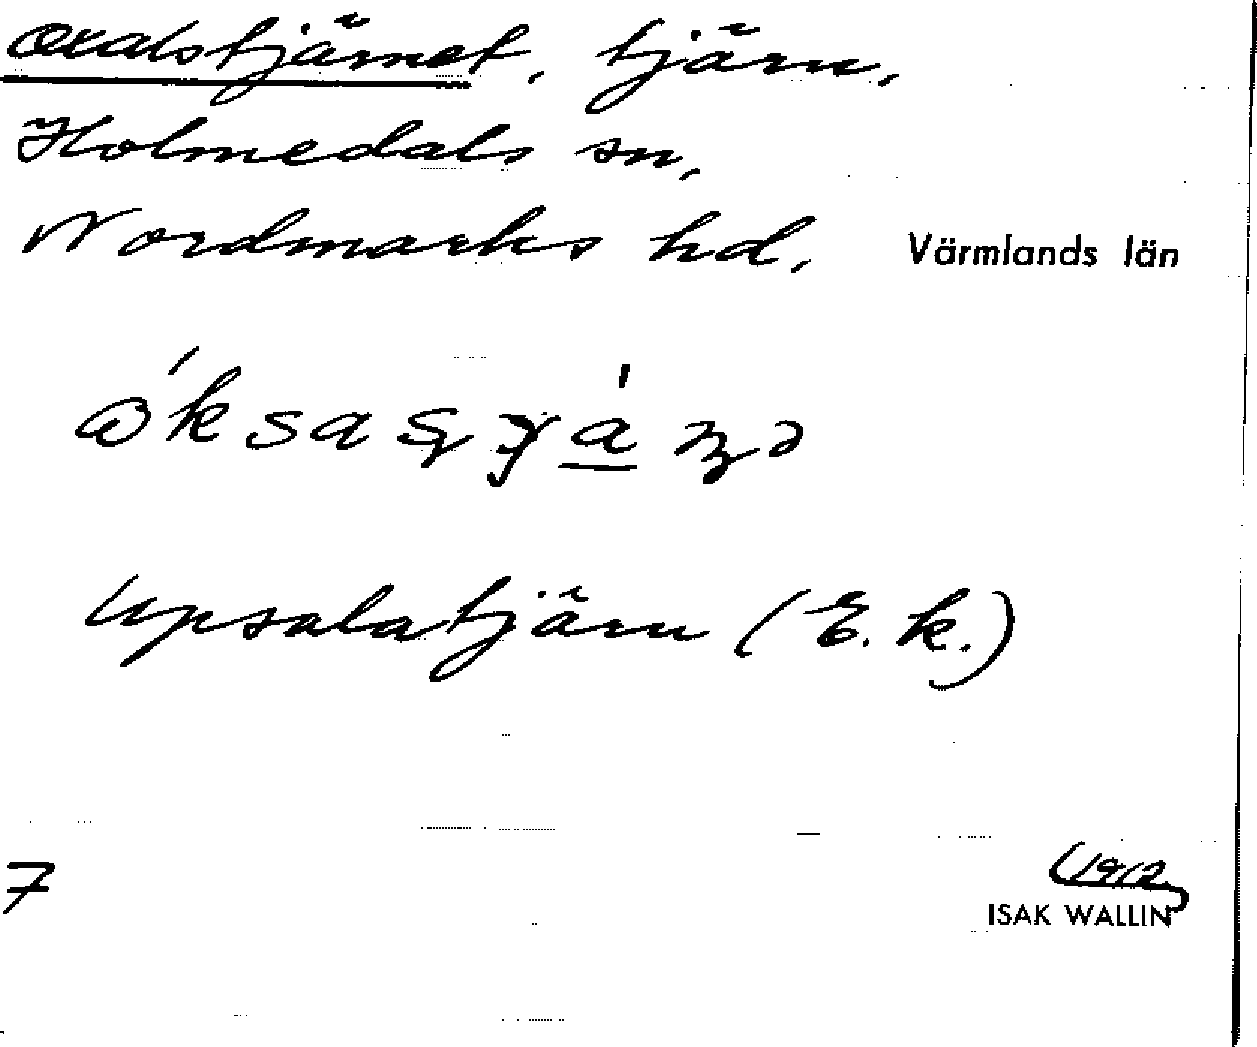 Oxalstjärnet, tjärn,
Holmedals sn,
Nordmarks hd, Värmlands län
Upsalatjärn (E.k.)
7
1912
ISAK WALLIN